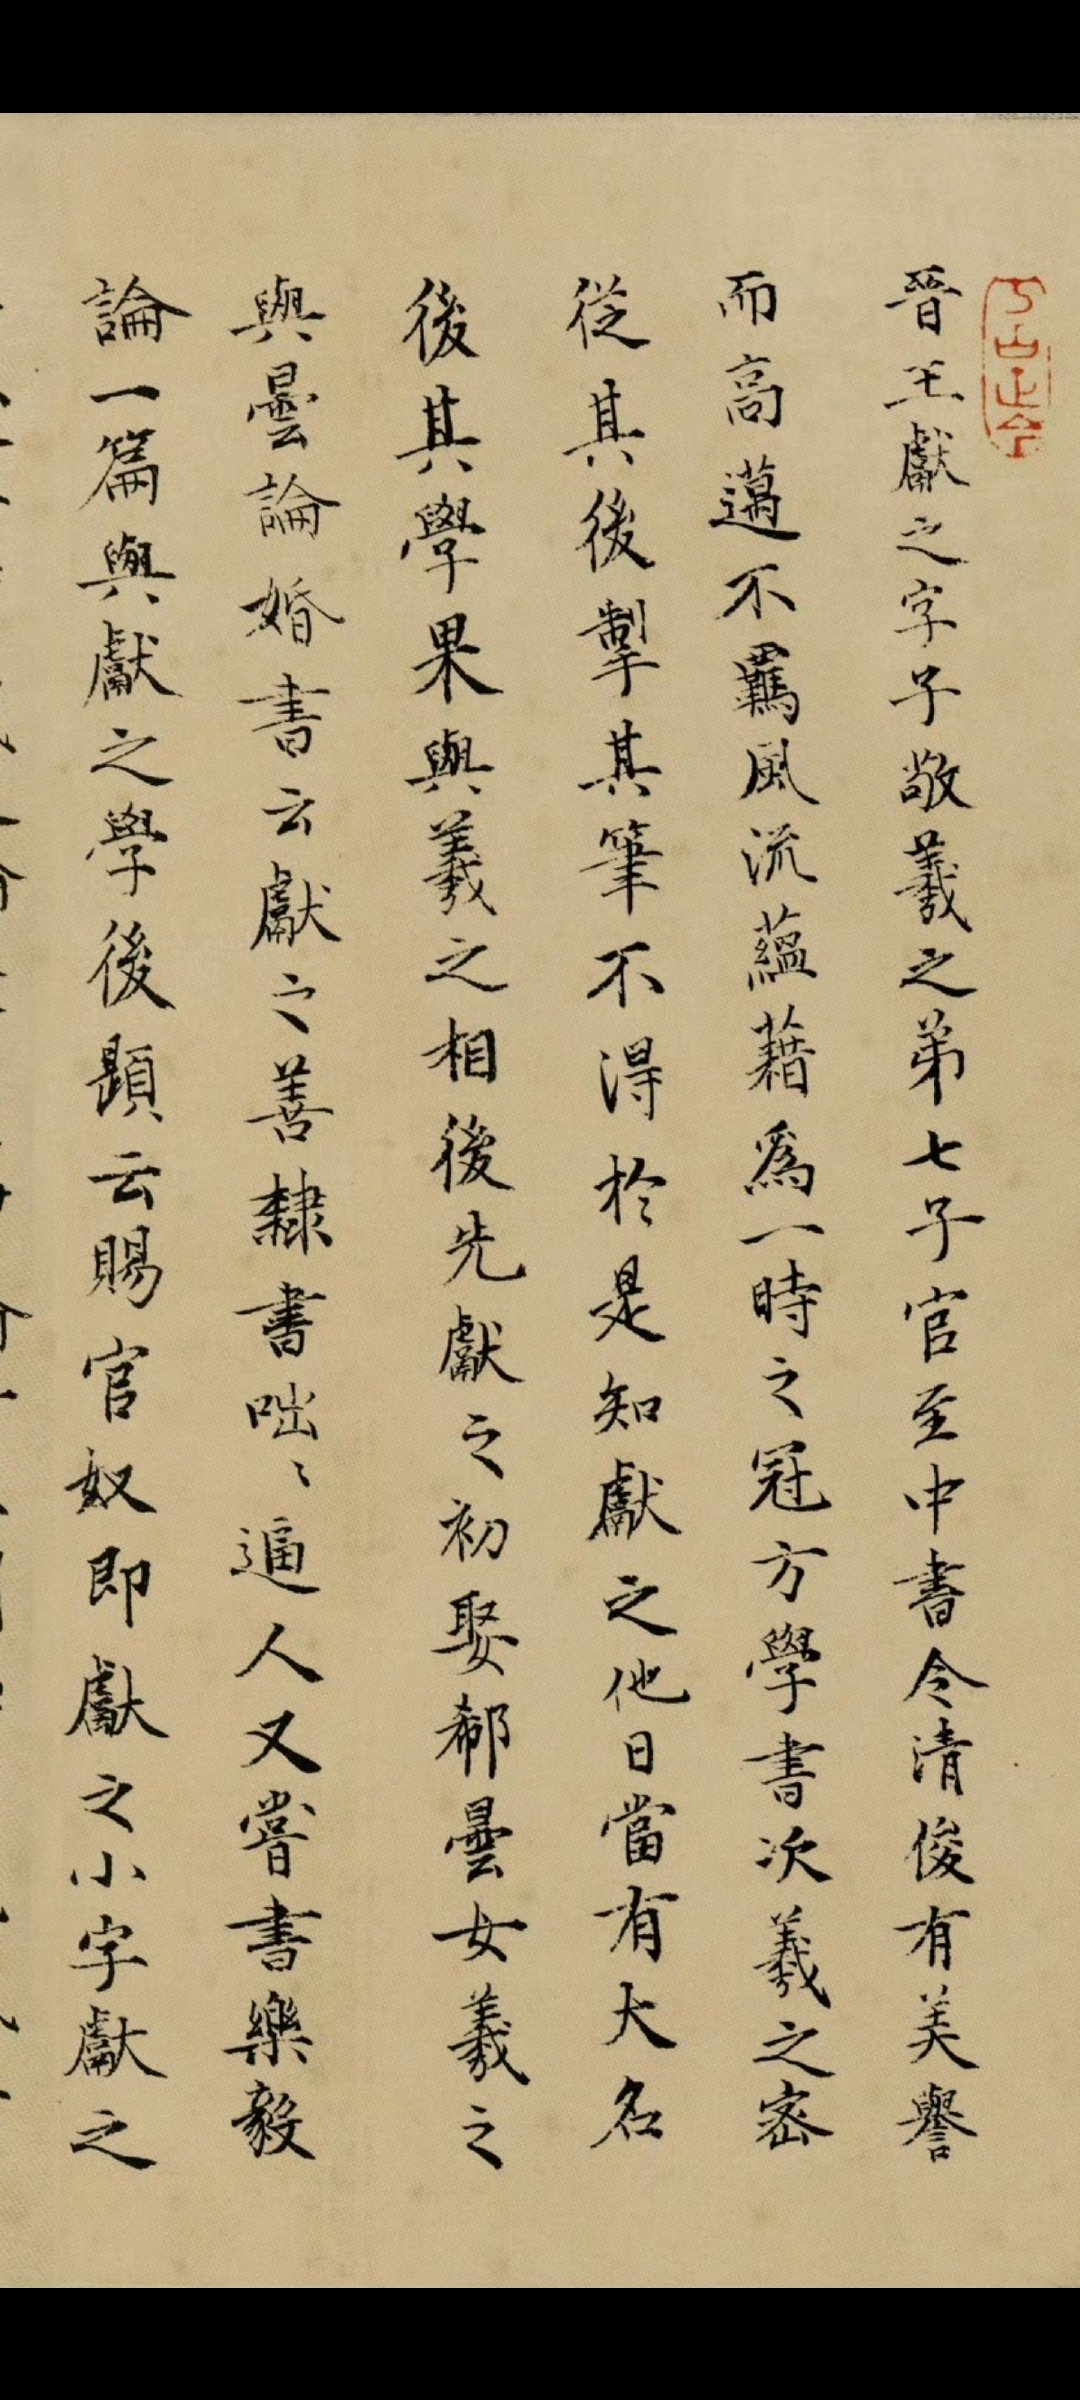 晉王獻之字子敬羲之弟七子官至中書令清俊有美譽
而高邁不羈風流蘊藉爲一時之冠方學書次羲之密
從其後掣其筆不得於是知獻之他日當有大名
後其學果與羲之相後先獻之初娶郗曇女羲之
與曇論婚書云獻之善隸書咄〻逼人又嘗書樂毅
論一篇與獻之學後題云賜官奴即獻之小字獻之